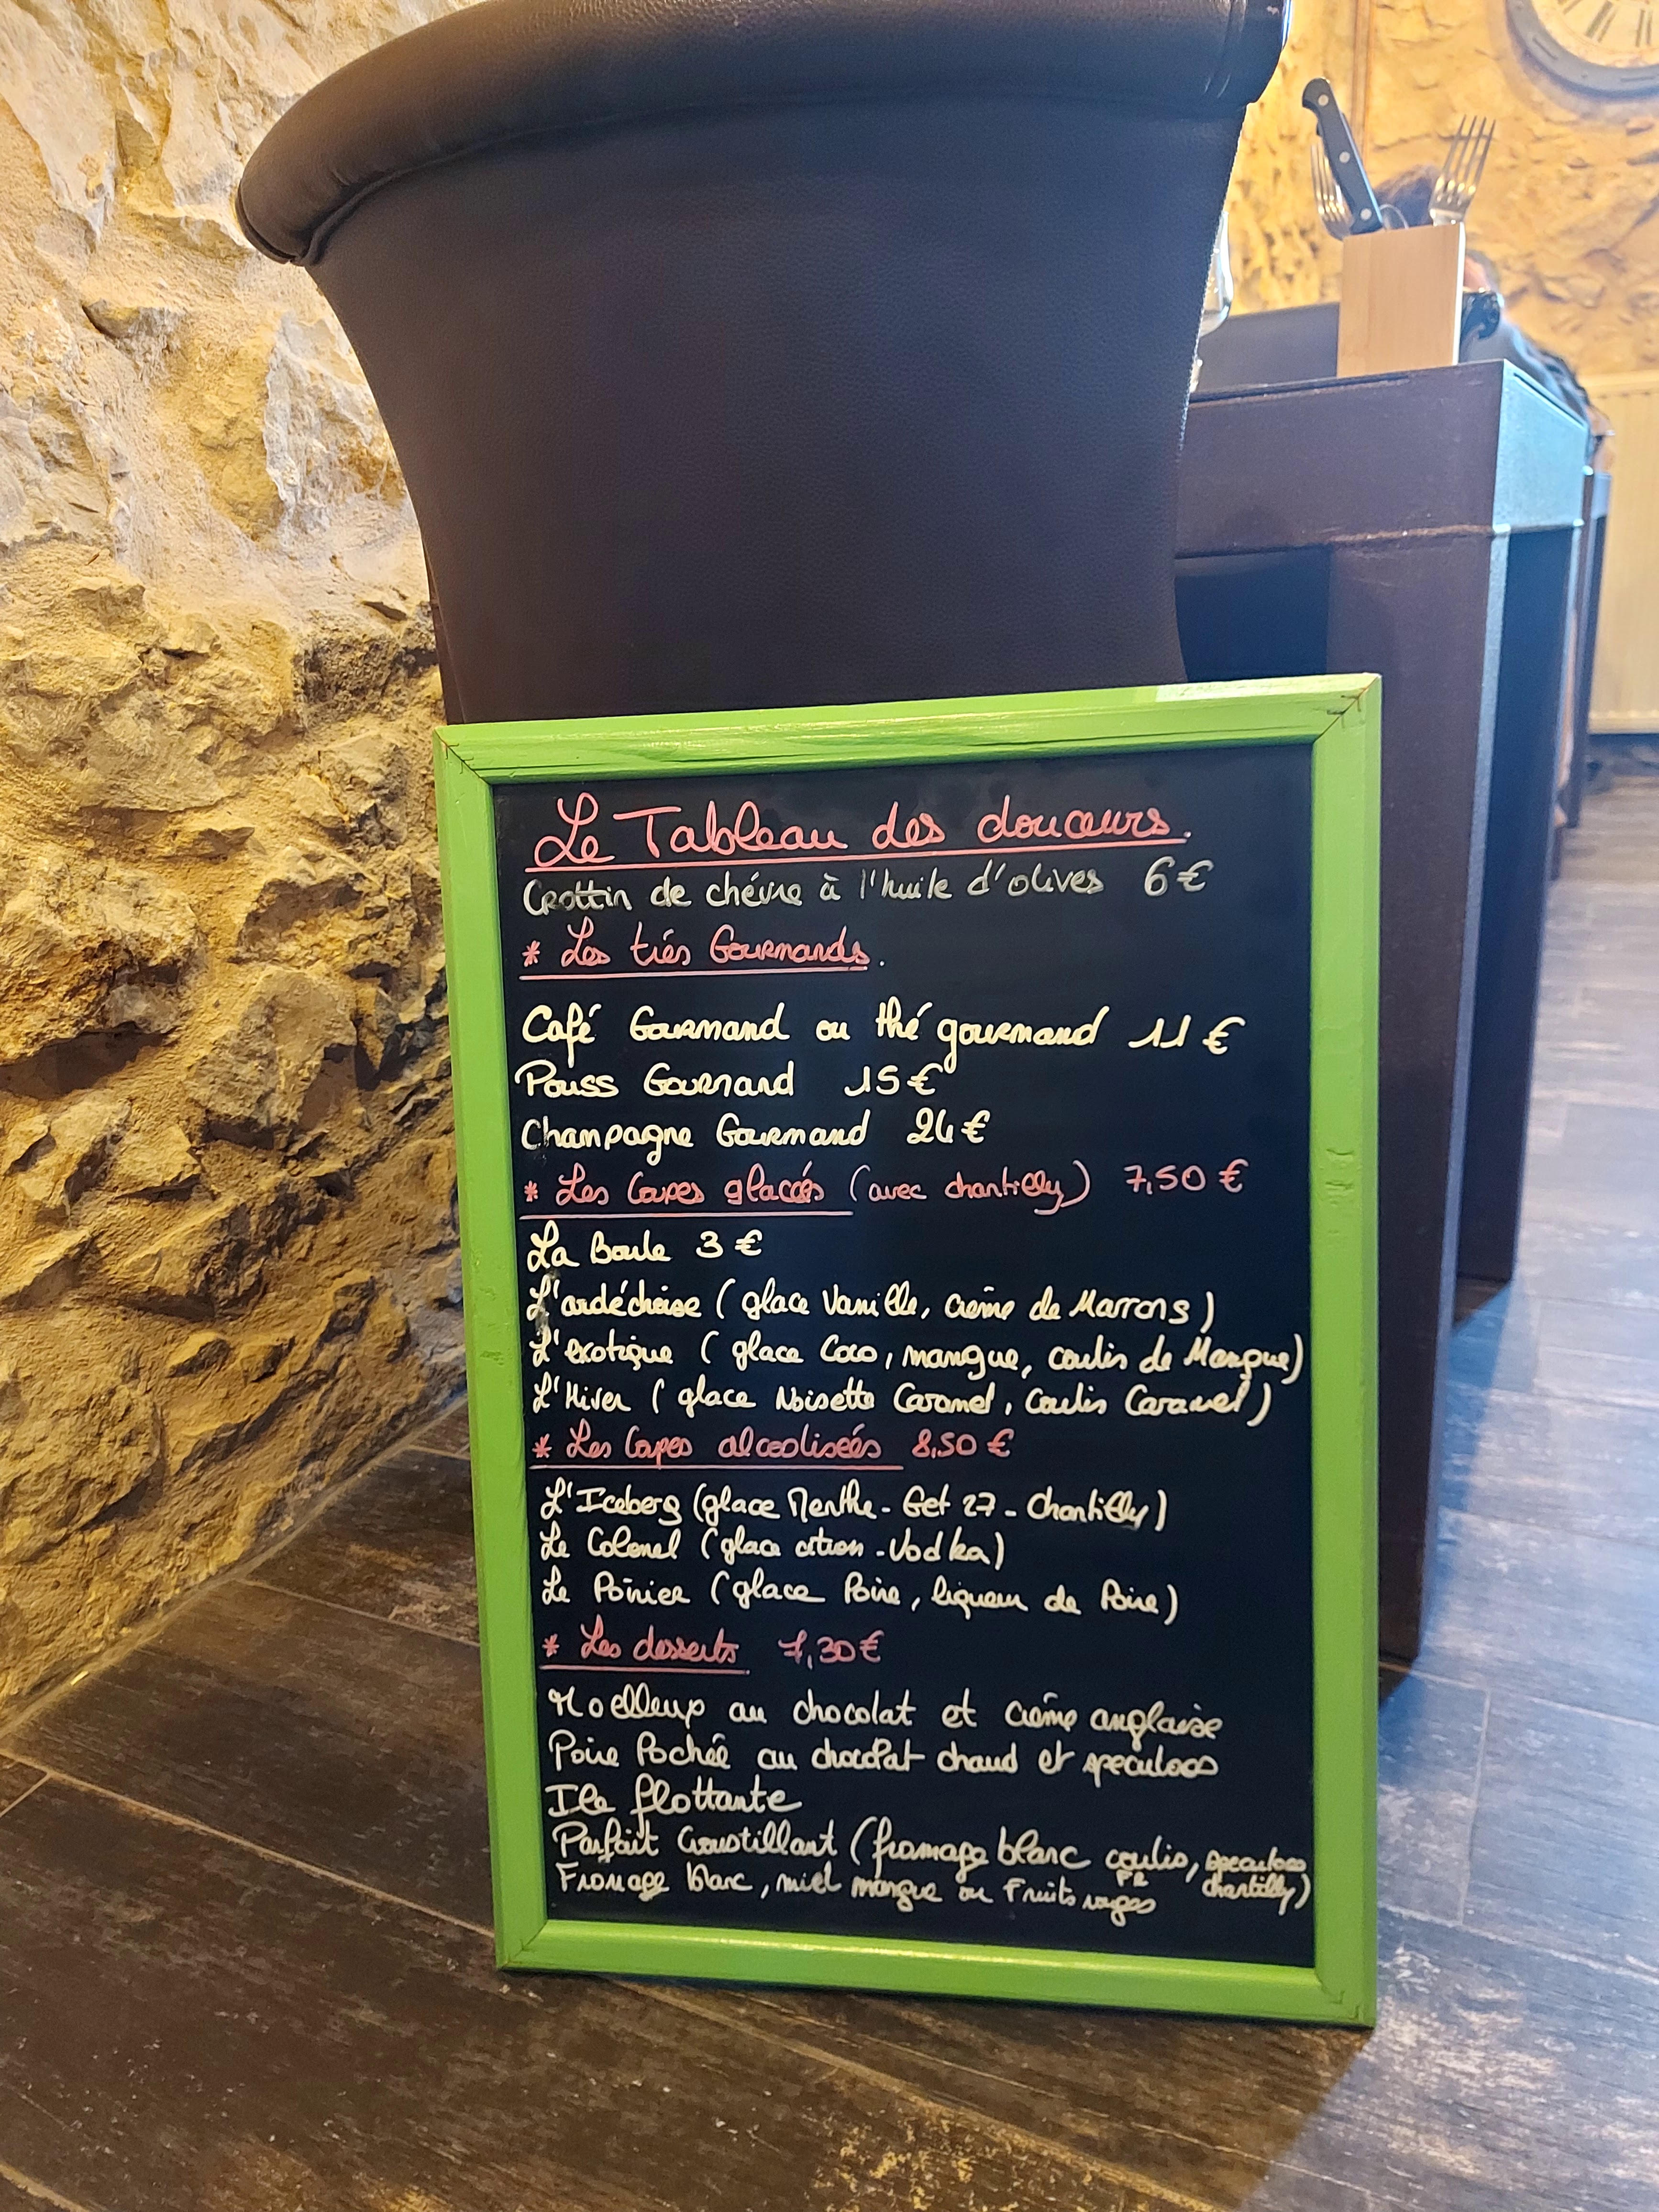 Le Tableau des douceurs.
Crottin de chévre à l'huile d'olives 6€
* Les trés Gourmands.
Café Gourmand ou thé gourmand 11€
Pouss Gourmand 15€
Champagne Gourmand 24€
* Les Coupes glacées (avec chantilly) 7,50€
La Boule 3€
L'ardéchoise (glace Vanille, crème de Marrons)
L'exotique (glace Coco, mangue, coulis de Mangue)
L'Hiver (glace Noisette Caramel, Coulis Caramel)
* Les Coupes alcoolisées 8,50€
L'Iceberg (glace Menthe - Get 27 - Chantilly)
Le Colonel (glace citron - Vodka)
Le Poirier (glace Poire, liqueur de Poire)
* Les desserts 7,30€
Moelleux au chocolat et crème anglaise
Poire Pochée au chocolat chaud et speculoos
Ile flottante
Parfait Croustillant (fromage blanc coulis FR, speculoos chantilly)
Fromage blanc, miel mangue ou Fruits rouges